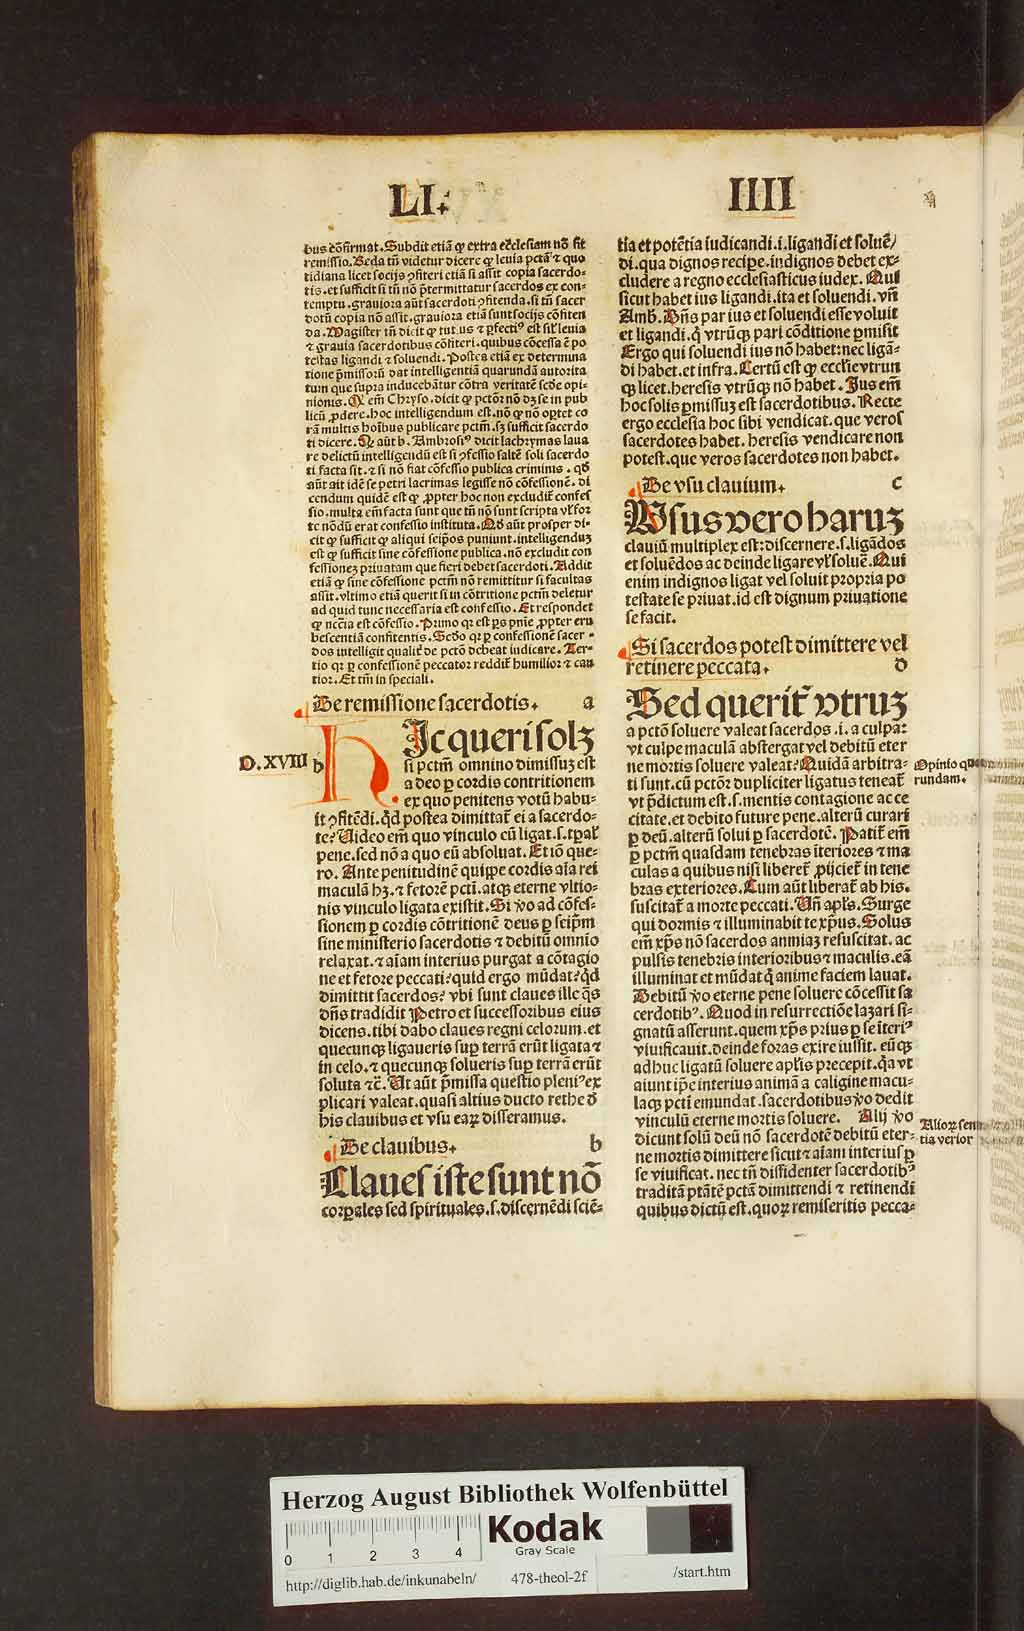 LI.
IIII
bus cōfirmat. Subdit etiā ꝙ extra ecclesiam nō fit
remissio. Beda tn̄ videtur dicere ꝙ leuia pctā ⁊ quo
tidiana licet socijs ꝯfiteri etiā si assit copia sacerdo-
tis. et sufficit si tn̄ nō p̄termittatur sacerdos ex con-
temptu. grauiora aūt sacerdoti ꝯfitenda. si tn̄ sacer
dotū copia nō assit. grauiora etiā sunt socijs cōfiten
da. Magister tn̄ dicit ꝙ tutius ⁊ ꝑfectiꝰ est silʼ leuia
⁊ grauia sacerdotibus cōfiteri. quibus cōcessa ē po
testas ligandi ⁊ soluendi. Postea etiā ex determina
tione p̄missorū dat intelligentiā quarundā autorita
tum que supra inducebātur cōtra veritatē scd̄e opi-
nionis. Qꝛ em̄ Chryso. dicit ꝙ pctōꝛ nō dꝫ se in pub
licū ꝓdere. hoc intelligendum est. nō ꝙ nō oꝑtet co
rā multis hoībus publicare pctm̄. sꝫ sufficit sacerdo
ti dicere. Qꝛ aūt b. Ambrosiꝰ dicit lachrymas laua
re delictū intelligendū est si ꝯfessio saltē soli sacerdo
ti facta sit. ⁊ si nō fiat cōfessio publica criminis. qd̄
aūt ait idē se petri lacrimas legisse nō cōfessionē. di
cendum quidē est ꝙ ꝓpter hoc non excludit̄ confes
sio. multa em̄ facta sunt que tn̄ nō sunt scripta vlʼ for
te nōdū erat confessio instituta. Qd̄ aūt prosper di-
cit ꝙ sufficit ꝙ aliqui seip̄os puniunt. intelligenduꝫ
est ꝙ sufficit sine cōfessione publica. nō excludit con
fessioneꝫ priuatam que fieri debet sacerdoti. Addit
etiā ꝙ sine cōfessione pctm̄ nō remittitur si facultas
assit. vltimo etiā querit si in cōtritione pctm̄ deletur
ad quid tunc necessaria est confessio. Et respondet
ꝙ nc̄cia est cōfessio. Primo qꝛ est ꝑs pn̄ie ꝓpter eru
bescentiā confitentis. Scd̄o qꝛ ꝑ confessionē sacer-
dos intelligit qualit̄ de pctō debeat iudicare. Ter-
tio qꝛ ꝑ confessionē peccator reddit̄ humilior ⁊ cau
tior. Et tm̄ in speciali.
De remissione sacerdotis. a
D. XVIII
h
HIc queri solꝫ
si pctm̄ omnino dimissuꝫ est
a deo ꝑ cordis contritionem
ex quo penitens votū habu-
it ꝯfitēdi. qd̄ postea dimittat̄ ei a sacerdo-
te? Video em̄ quo vinculo cū ligat. s. tꝑalʼ
pene. sed nō a quo eū absoluat. Et iō que-
ro. Ante penitudinē quippe cordis aīa rei
maculā hꝫ. ⁊ fetorē pcti. atqꝫ eterne vltio-
nis vinculo ligata existit. Si ꝟo ad cōfes-
sionem ꝑ cordis cōtritionē deus ꝑ seip̄m
sine ministerio sacerdotis ⁊ debitū omnīo
relaxat. ⁊ aīam interius purgat a cōtagio
ne et fetore peccati? quid ergo mūdat? qd̄
dimittit sacerdos? vbi sunt claues ille q̄s
dn̄s tradidit Petro et successoribus eius
dicens. tibi dabo claues regni celorum. et
quecunqꝫ ligaueris suꝑ terrā erūt ligata ⁊
in celo. ⁊ quecunqꝫ solueris suꝑ terrā erūt
soluta ⁊c̄. Ut aūt p̄missa questio pleniꝰ ex
plicari valeat. quasi altius ducto rethe ō
his clauibus et vsu eaꝝ disseramus.
De clauibus. b
Claues iste sunt nō
corꝑales sed spirituales. s. discernēdi sciē-
tia et potētia iudicandi. i. ligandi et soluē/
di. qua dignos recipe. indignos debet ex-
cludere a regno ecclesiasticus iudex. Qui
sicut habet ius ligandi. ita et soluendi. vn̄
Amb. Dn̄s par ius et soluendi esse voluit
et ligandi. q̄ vtrūqꝫ pari cōditione ꝑmisit
Ergo qui soluendi ius nō habet: nec ligā-
di habet. et infra. Certū est ꝙ eccl̄ie vtrun
qꝫ licet. heresis vtrūqꝫ nō habet. Ius em̄
hoc solis ꝑmissuꝫ est sacerdotibus. Recte
ergo ecclesia hoc sibi vendicat. que veros
sacerdotes habet. heresis vendicare non
potest. que veros sacerdotes non habet.
De vsu clauium. c
Usus vero haruꝫ
clauiū multiplex est: discernere. s. ligādos
et soluēdos ac deinde ligare vlʼ soluē. Qui
enim indignos ligat vel soluit propria po
testate se priuat. id est dignum priuatione
se facit.
Si sacerdos potest dimittere vel
retinere peccata. d
Sed querit̄ vtruꝫ
a pctō soluere valeat sacerdos. i. a culpa:
vt culpe maculā abstergat vel debitū eter
ne mortis soluere valeat? Quidā arbitra-
ti sunt. cū pctōꝛ dupliciter ligatus teneat̄
vt p̄dictum est. s. mentis contagione ac ce
citate. et debito future pene. alterū curari
ꝑ deū. alterū solui ꝑ sacerdotē. Patit̄ em̄
ꝑ pctm̄ quasdam tenebras īteriores ⁊ ma
culas a quibus nisi liberet̄ ꝓijciet̄ in tene
bras exteriores. Cum aūt liberat̄ ab his.
suscitat̄ a morte peccati. Vn̄ apl̄s. Surge
qui dormis ⁊ illuminabit te xp̄us. Solus
em̄ xp̄s nō sacerdos animaꝫ resuscitat. ac
pulsis tenebris interioribus ⁊ maculis. eā
illuminat et mūdat q̄ anime faciem lauat.
Debitū ꝟo eterne pene soluere cōcessit sa
cerdotibꝰ. Quod in resurrectiōe lazari si-
gnatū asserunt. quem xp̄s prius ꝑ se īteriꝰ
viuificauit. deinde foras exire iussit. eūqꝫ
adhuc ligatū soluere apl̄is precepit. q̄a vt
aiunt ip̄e interius animā a caligine macu-
laqꝫ pcti emundat. sacerdotibus ꝟo dedit
vinculū eterne mortis soluere. Alij ꝟo
dicunt solū deū nō sacerdotē debitū eter-
ne mortis dimittere sicut ⁊ aīam interius ꝑ
se viuificat. nec tn̄ diffidenter sacerdotibꝰ
traditā ptātē pctā dimittendi ⁊ retinendi
quibus dictū est. quoꝝ remiseritis pecca-
Opinio quo
rundam.
Alioꝝ senten
tia verior
Herzog August Bibliothek Wolfenbüttel
0 1 2 3 4
Kodak
Gray Scale
http://diglib.hab.de/inkunabeln/ 478-theol-2f /start.htm